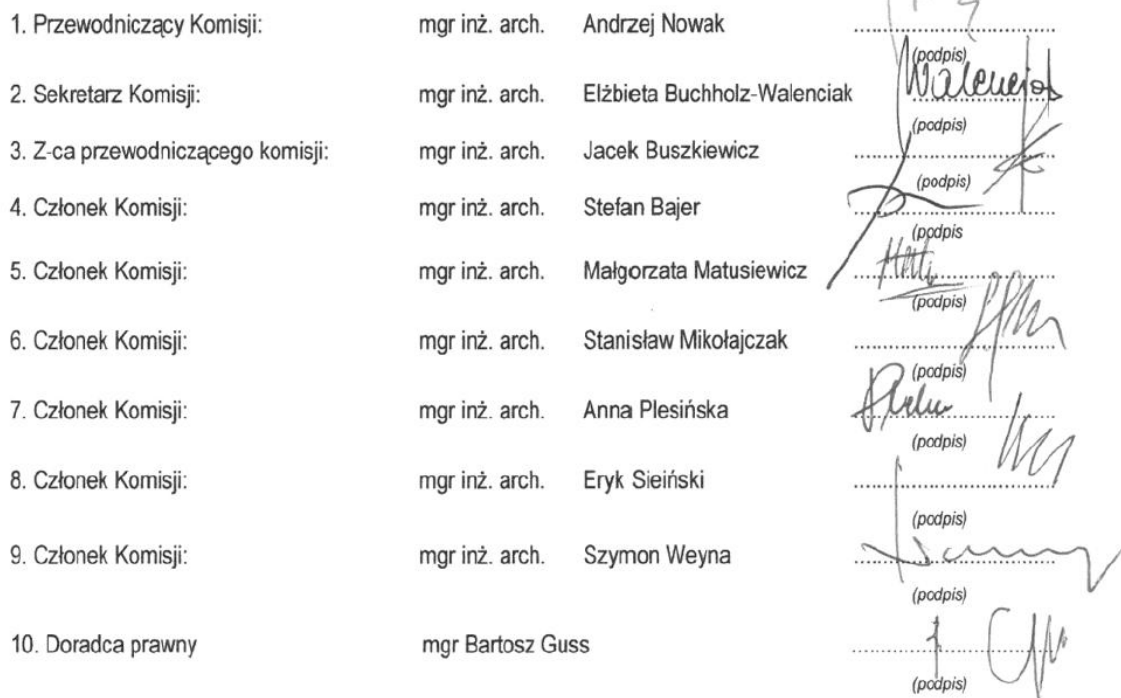 1. Przewodniczący Komisji: mgr inż. arch. Andrzej Nowak ..............................
(podpis)
2. Sekretarz Komisji: mgr inż. arch. Elżbieta Buchholz-Walenciak ..............................
(podpis)
3. Z-ca przewodniczącego komisji: mgr inż. arch. Jacek Buszkiewicz ..............................
(podpis)
4. Członek Komisji: mgr inż. arch. Stefan Bajer ..............................
(podpis
5. Członek Komisji: mgr inż. arch. Małgorzata Matusiewicz ..............................
(podpis)
6. Członek Komisji: mgr inż. arch. Stanisław Mikołajczak ..............................
(podpis)
7. Członek Komisji: mgr inż. arch. Anna Plesińska ..............................
(podpis)
8. Członek Komisji: mgr inż. arch. Eryk Sieiński ..............................
(podpis)
9. Członek Komisji: mgr inż. arch. Szymon Weyna ..............................
(podpis)
10. Doradca prawny mgr Bartosz Guss ..............................
(podpis)